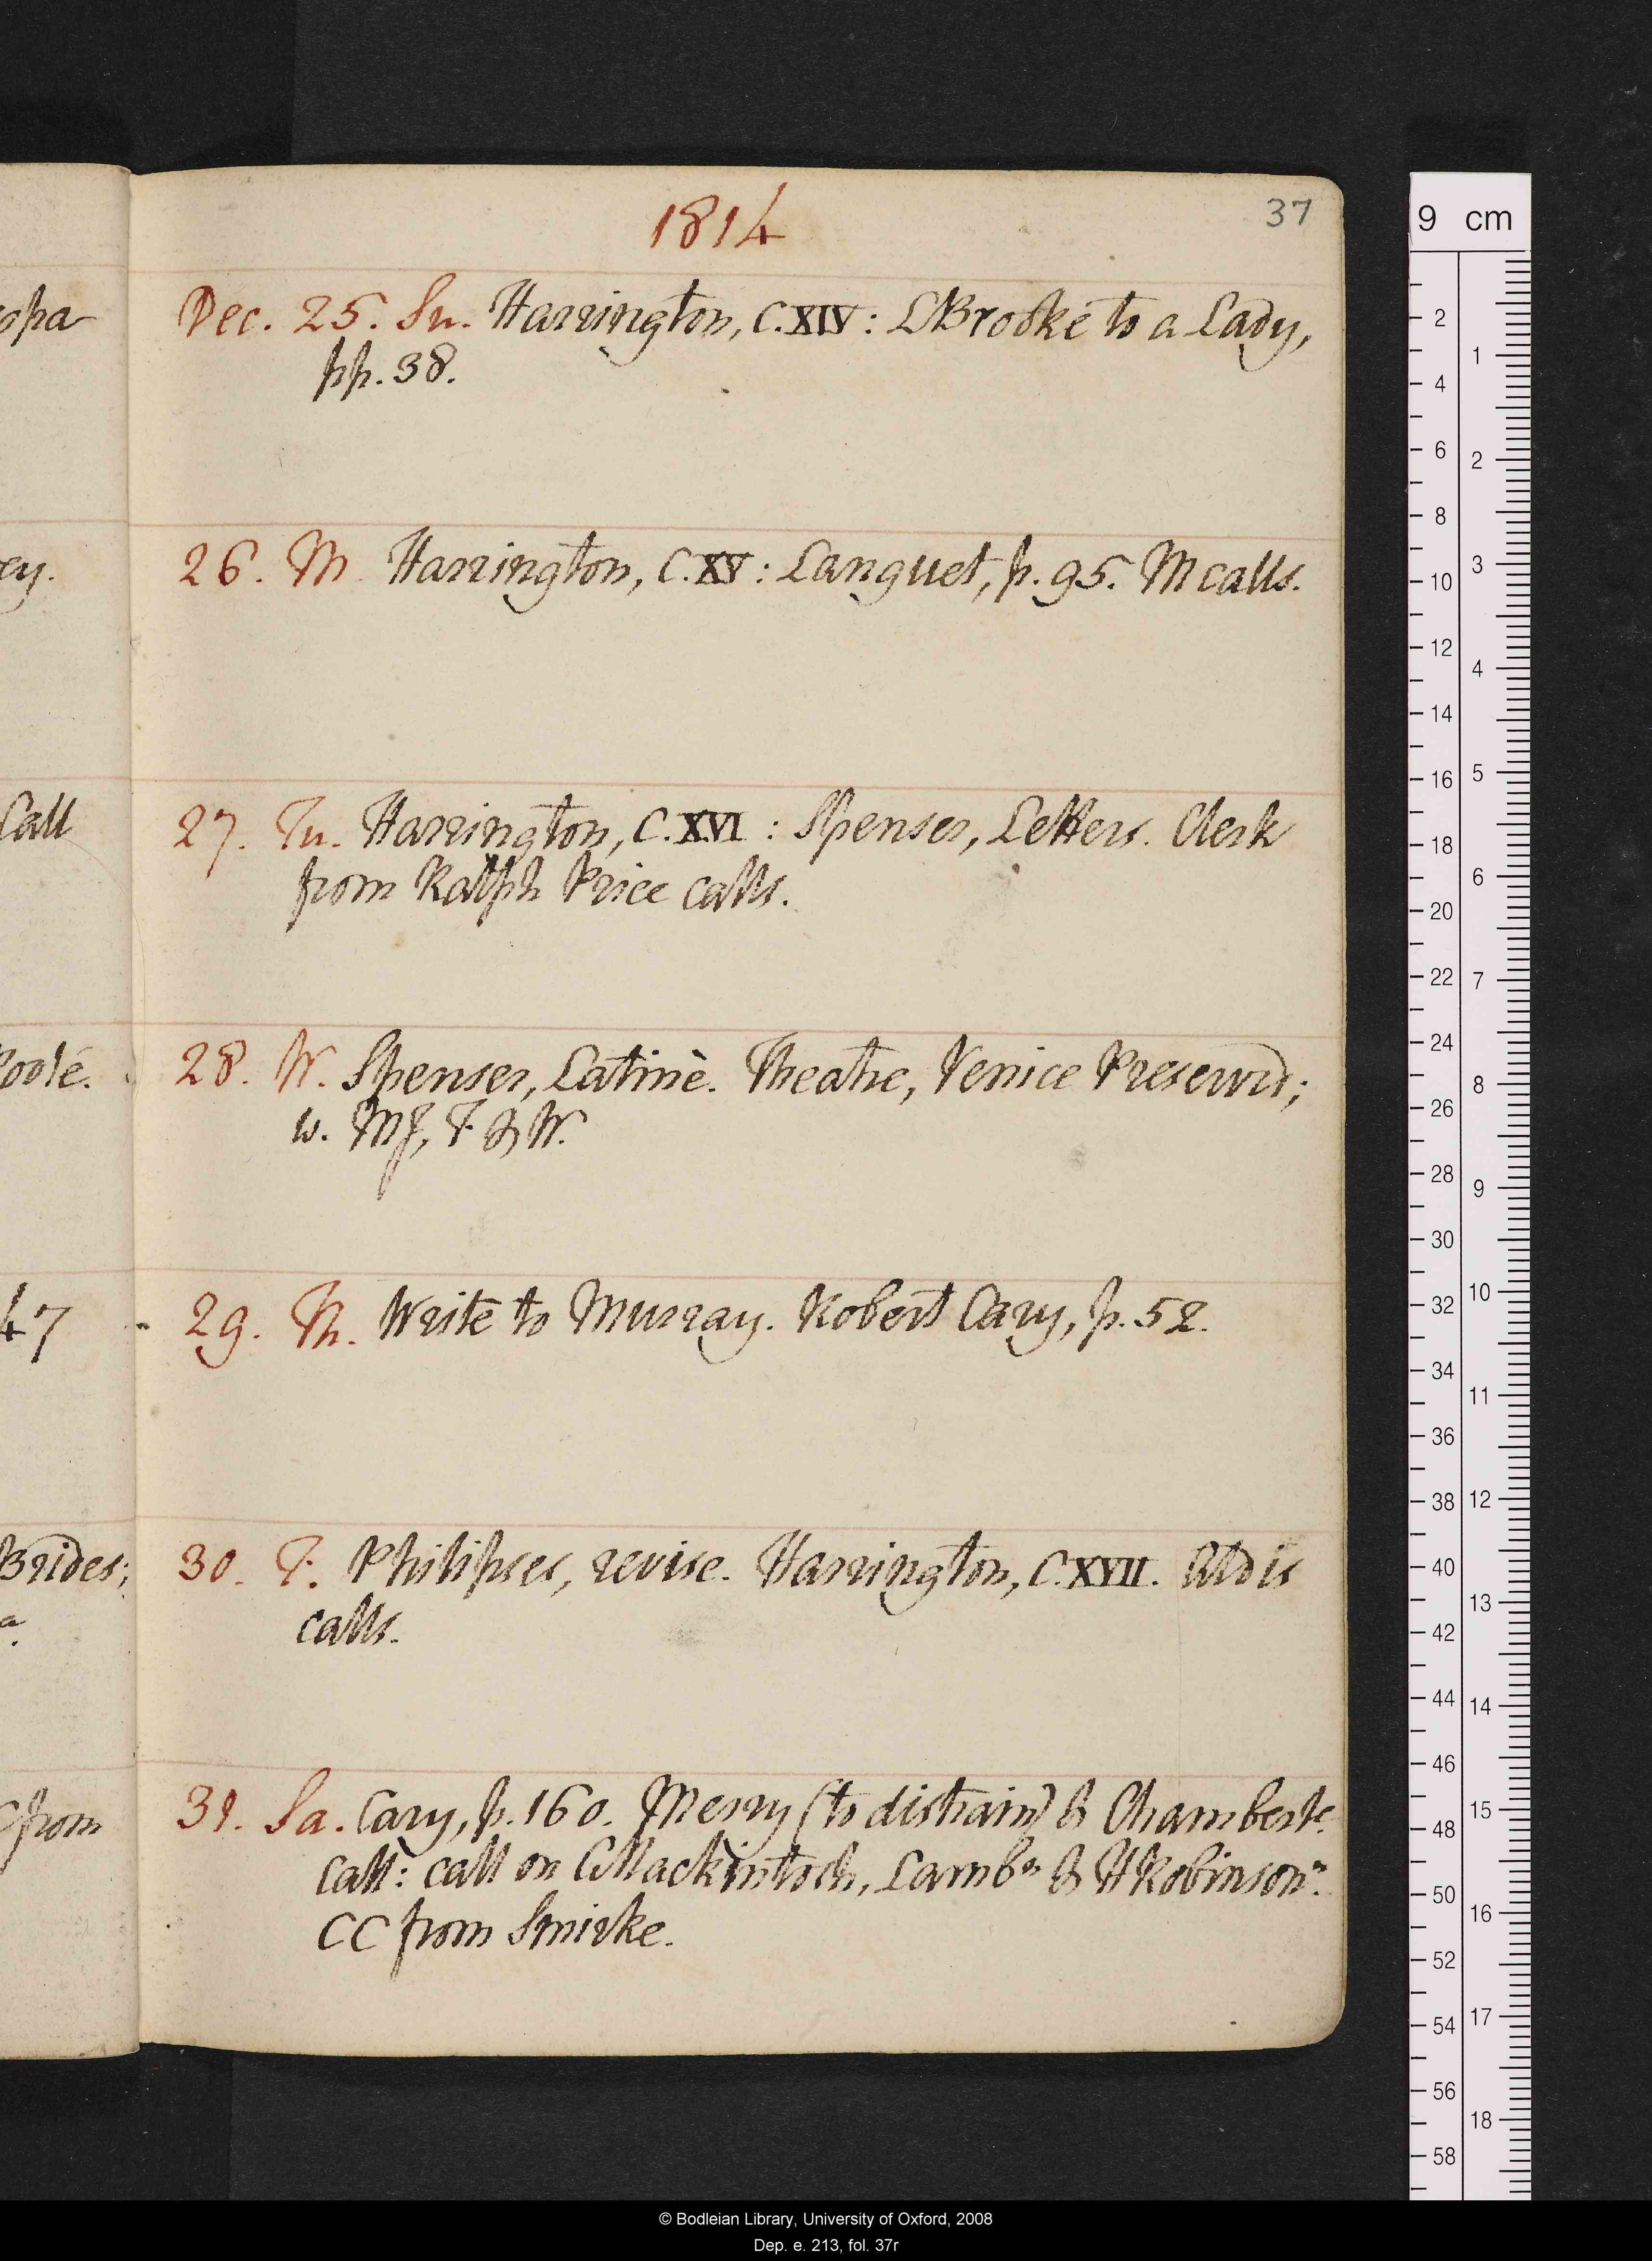 1814
37
Dec. 25. Su. Harrington, C. XIV: LBrooke to a Lady,
pp. 38.
26. M. Harrington, C. XV: Languet, p. 95. M calls.
27. Tu. Harrington, C. XVI: Spenser, Letters. Clerk
from Ralph Price calls.
28. W. Spenser, Latinè. Theatre, Venice Preservd;
w. MJ, F & W.
29. Th. Write to Murray. Robert Cary, p. 52.
30. F. Philipses, revise. Harrington, C. XVII. Aldis
calls.
31. Sa. Cary, p. 160. Merry (to distrain) &
call: call on CMackintosh, Lambⁿ & HRobinsonⁿ.
CC from Smirke.
opa
ey.
Call
47
Brides;
a.
from
9 cm
2
4
6
8
10
12
14
16
18
20
22
24
26
28
30
32
34
36
38
40
42
44
46
48
50
52
54
56
58
1
2
3
4
5
6
7
8
9
10
11
12
13
14
15
16
17
18
© Bodleian Library, University of Oxford, 2008
Dep. e. 213, fol. 37r